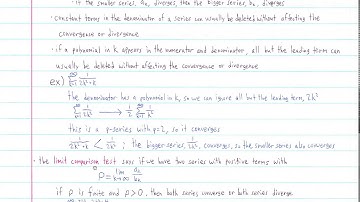 · if the smaller series, aₖ, diverges, then the bigger series, bₖ, diverges
· constant terms in the denominator of a series can usually be deleted without affecting the
convergence or divergence
· if a polynomial in k appears in the numerator and denominator, all but the leading term can
usually be deleted without affecting the convergence or divergence
ex) ∑ 1/(2k²+k)
the denominator has a polynomial in k, so we can ignore all but the leading term, 2k²
∑ 1/2k² → 1/2 ∑ 1/k²
this is a p-series with p=2, so it converges
1/(2k²+k) < 1/2k²; the bigger series, 1/2k², converges, so the smaller series also converges
· the limit comparison test says if we have two series with positive terms with
ρ = lim k→∞ aₖ/bₖ
if ρ is finite and ρ>0, then both series converge or both series diverge